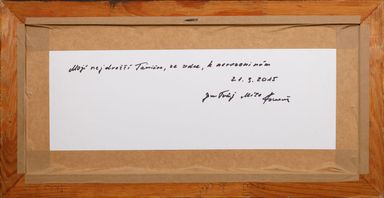 Mojí nejdražší Taničce, ze srdce, k narozeninám
21. 3. 2015
Jen Tvůj Milo